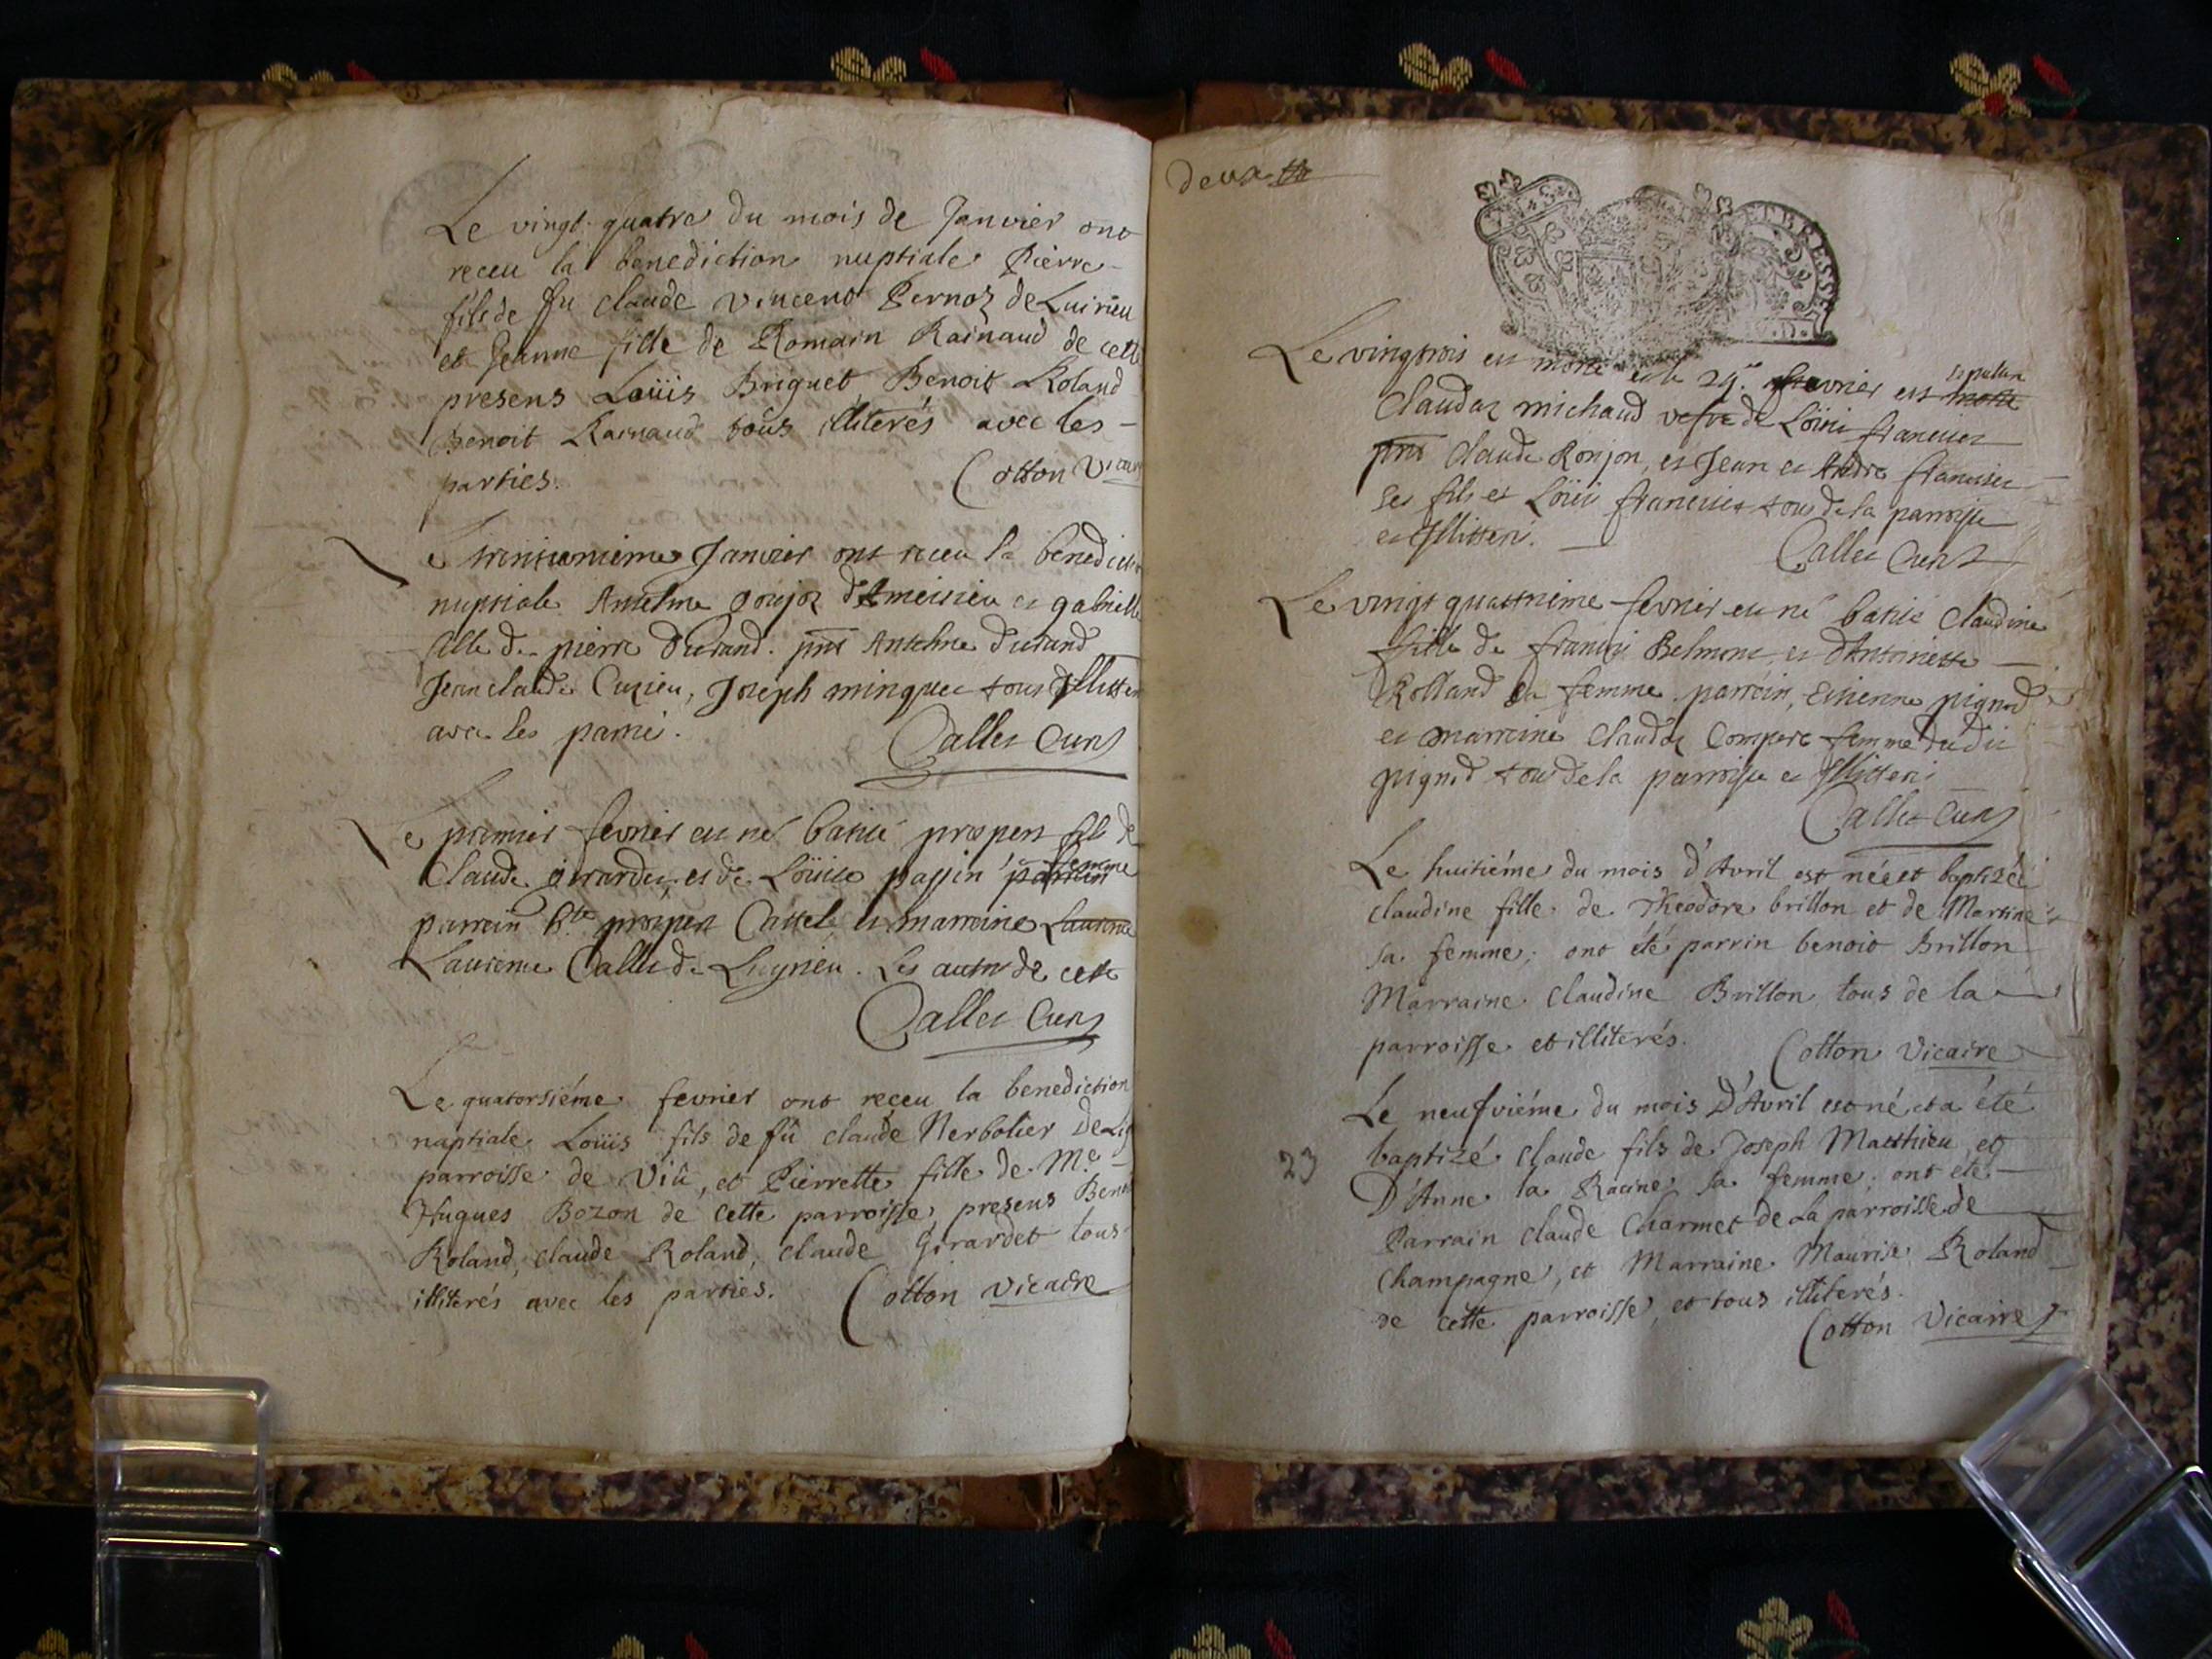 Le vingt quatre du mois de Janvier ont
receu la benediction nuptiale Pierre
fils de fu claude vincent Pernoz de Luirieu
et Jeanne fille de Romain Rainaud de cette
presens Loüis Briguet Benoit Roland
Benoit Rainaud tous illiterés avec les
parties. Cotton Vicaire
Le trentiunieme Janvier ont receu la benediction
nuptiale Anselme goujoz d'Ameisieu et gabrielle
fille de pierre Durand. pnt Anthelme durand
Jean claude Cuzieu, Joseph minguet tous Illitter
avec les partie. Callet Curé
Le premier fevrier est né batisé prosper fils de
Claude girardet et de Loüise passin femme
parrain Sr prosper Cattel et marraine Laurence
Laurence Callet de Luyrieu. Les autre de cette
Callet Curé
Le quatorsiéme fevrier ont reçeu la benediction
nuptiale Loüis fils de fû claude Nerbolier De Lig
parroisse de Viû, et Pierrette fille de Me
Hugues Bozon de cette parroisse, presens Benoit
Roland, claude Roland, claude Girardet tous
illiterés avec les parties. Cotton vicaire
deux
BRESSE
Le vingtrois est morte et le 24e. fevrier est sepulture morte
Claudaz michaud vefve de Loüis francillet
pnt Claude Ronjon, et Jean et Andre
ses fils et Loüis tous de la parroisse
et Illitteri. Callet Curé
Le vingt quattrieme fevrier est né batisé Claudine
fille de françois Belmont et d'Antoinette
Rolland sa femme. parrain, Estienne pignod
et marraine Claudaz Compere femme dudit
pignod tous de la parroisse et Illitteri
Callet Curé
Le huitiéme du mois d'Avril est née et baptizée
claudine fille de Theodore brillon et de Martine
sa femme; ont été parrin benoit Brillon
Marraine claudine Brillon tous de la
parroisse et illiterés. Cotton Vicaire
Le neufviéme du mois D'Avril est né et a été
23 baptizé claude fils de Joseph Matthieu et
D'Anne la Racine sa femme; ont été
Parrain claude Charmet de La parroisse de
Champagne, et Marraine Maurise Roland
de cette parroisse, et tous illiterés.
Cotton Vicaire